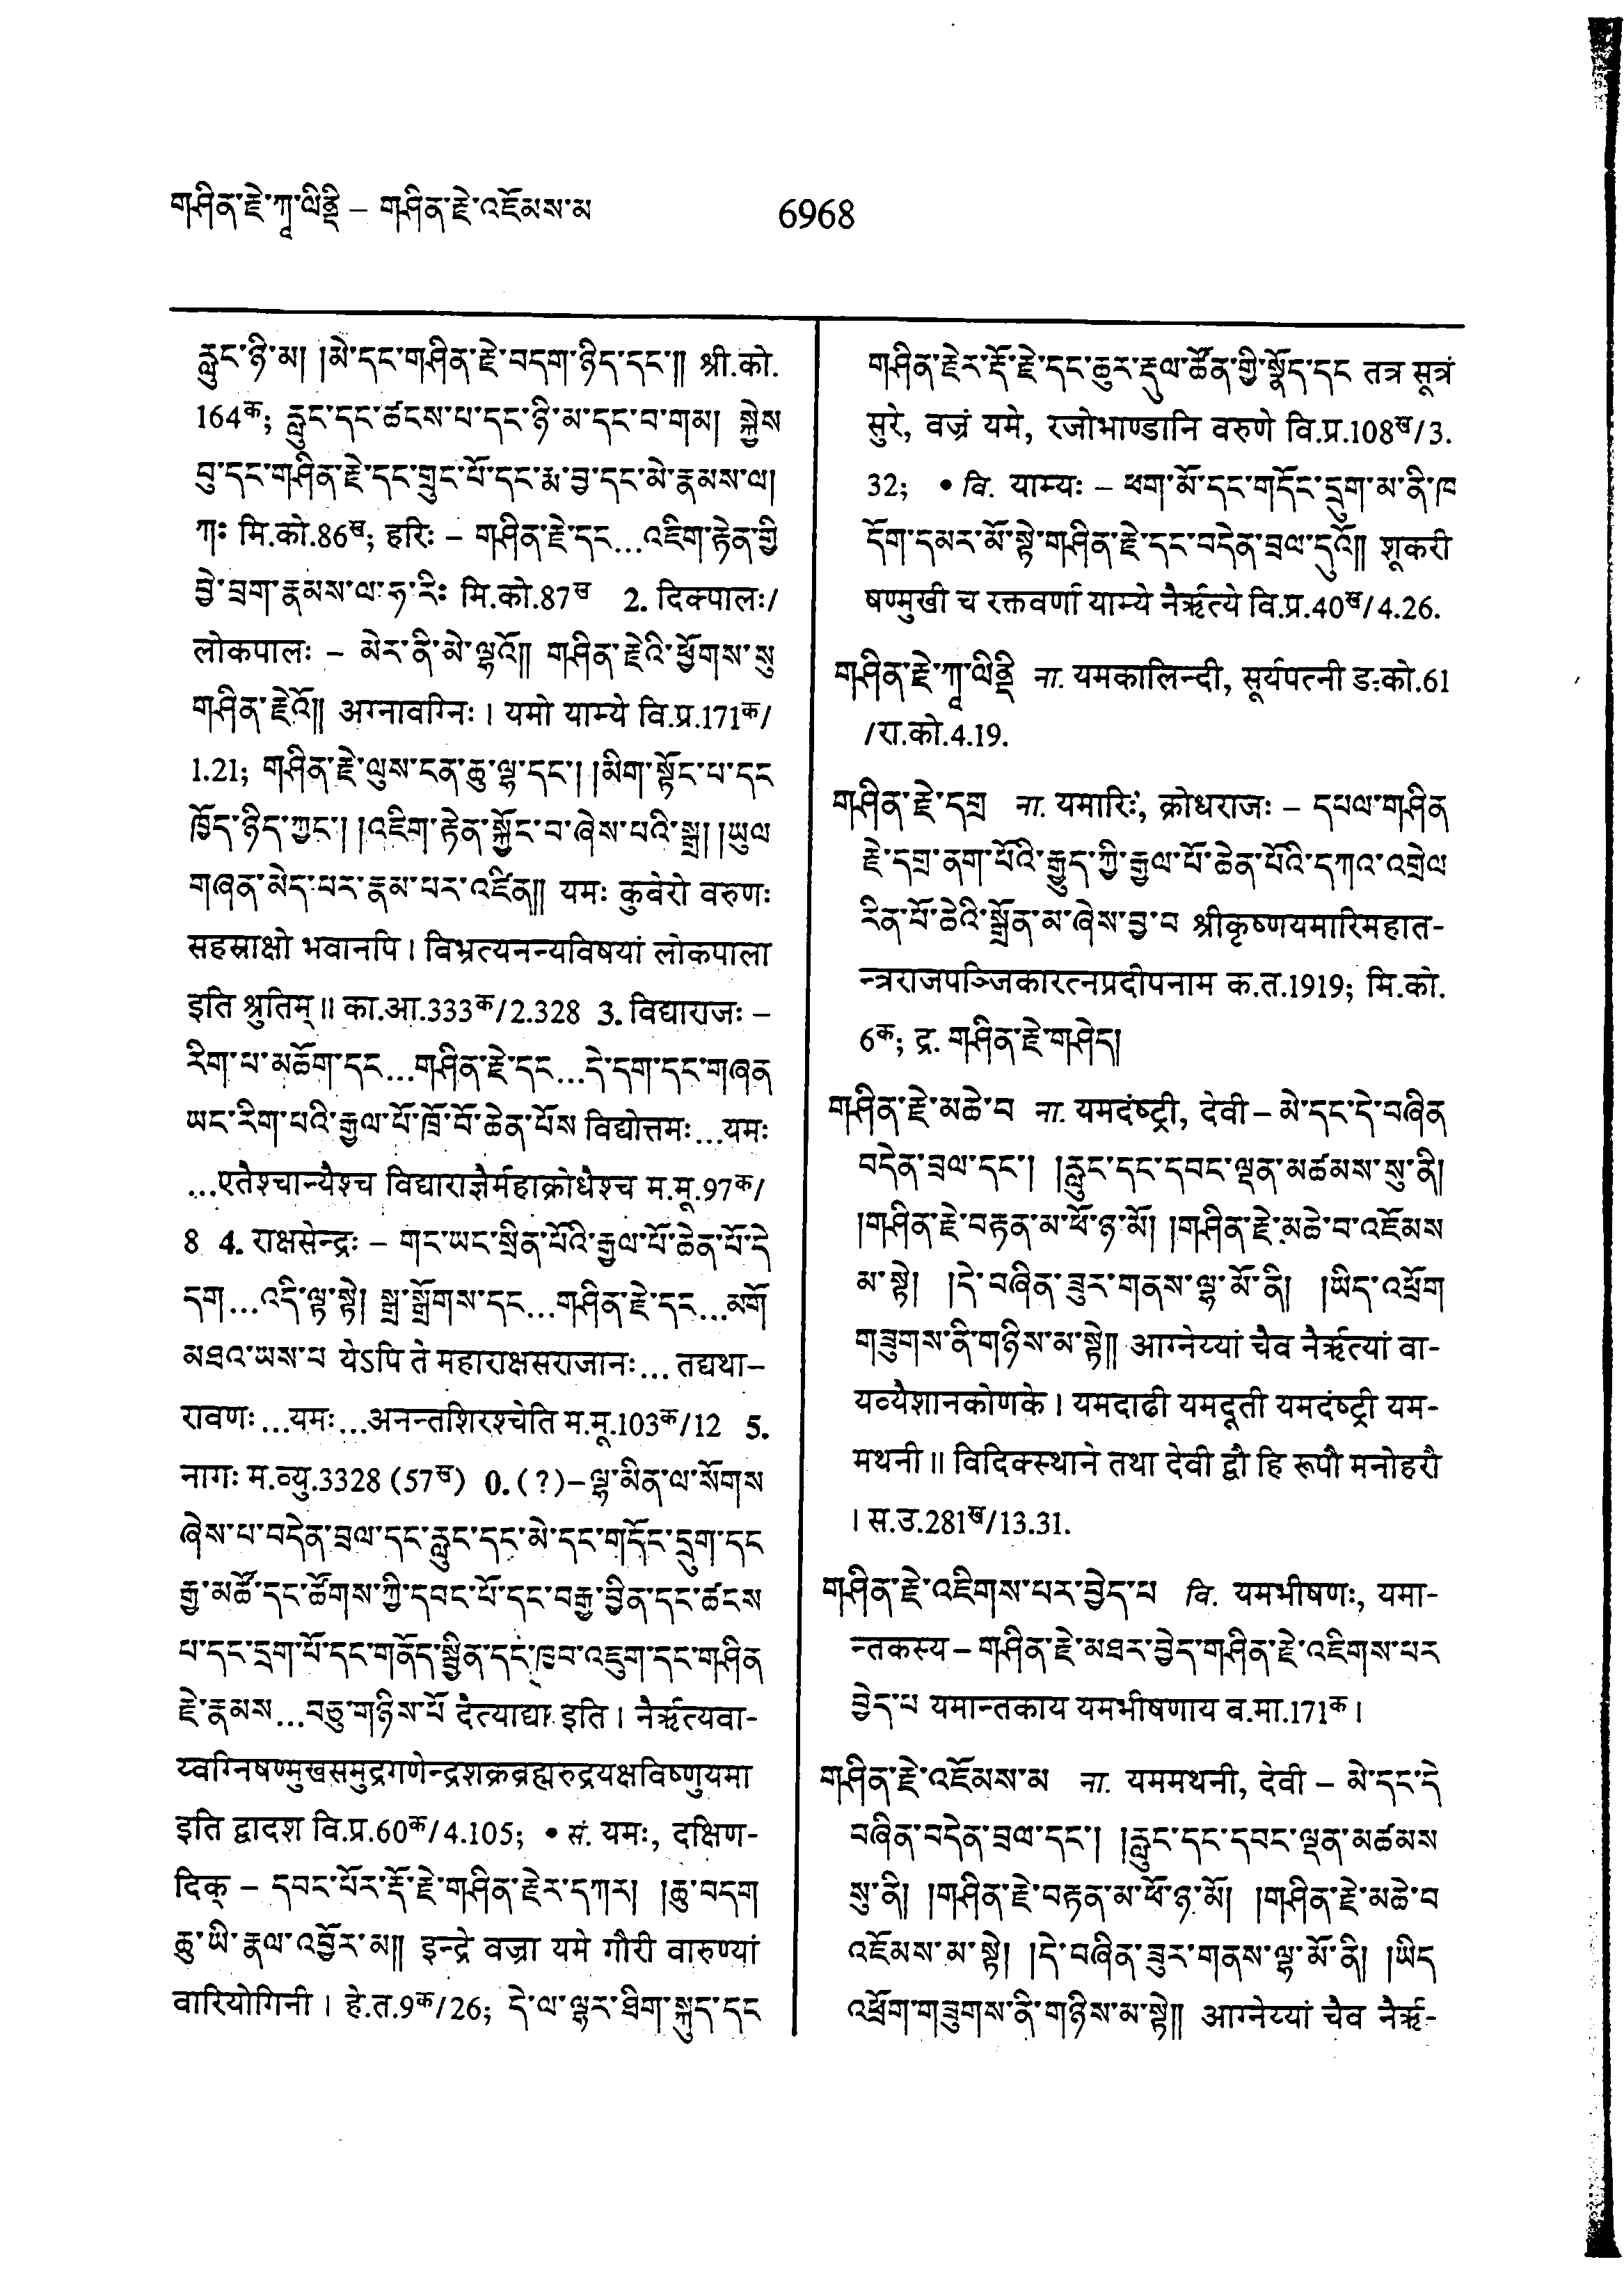 གཤིན་རྗེ་ཀཱ་ལིནྡི – གཤིན་རྗེ་འཇོམས་མ
6968
རླུང་ཉི་མ། །མེ་དང་གཤིན་རྗེ་བདག་ཉིད་དང་༎ श्री.को.
164क; རླུང་དང་ཚངས་པ་དང་ཉི་མ་དང་བ་གམ། སྐྱེས
བུ་དང་གཤིན་རྗེ་དང་གྲུང་པོ་དང་རྨ་བྱ་དང་མེ་རྣམས་ལ།
ཀཿ मि.को.86ख; हरिः – གཤིན་རྗེ་དང…འཇིག་རྟེན་གྱི
བྱེ་བྲག་རྣམས་ལ་ཧ་རིཿ मि.को.87ख 2. दिक्पालः/
लोकपालः – མེར་ནི་མེ་ལྷའོ༎ གཤིན་རྗེའི་ཕྱོགས་སུ
གཤིན་རྗེའོ༎ अग्नावग्निः । यमो याम्ये वि.प्र.171क/
1.21; གཤིན་རྗེ་ལུས་ངན་ཆུ་ལྷ་དང་། །མིག་སྟོང་པ་དང
ཁྱོད་ཉིད་ཀྱང་། །འཇིག་རྟེན་སྐྱོང་བ་ཞེས་པའི་སྒྲ། །ཡུལ
གཞན་མེད་པར་རྣམ་པར་འཛིན༎ यमः कुबेरो वरुणः
सहस्राक्षो भवानपि । बिभ्रत्यनन्यविषयां लोकपाला
इति श्रुतिम् ॥ का.आ.333क/2.328 3. विद्याराजः –
རིག་པ་མཆོག་དང…གཤིན་རྗེ་དང…དེ་དག་དང་གཞན
ཡང་རིག་པའི་རྒྱལ་པོ་ཁྲོ་བོ་ཆེན་པོས विद्योत्तमः…यमः
…एतैश्चान्यैश्च विद्याराज्ञैर्महाक्रोधैश्च म.मू.97क/
8 4. राक्षसेन्द्रः – གང་ཡང་སྲིན་པོའི་རྒྱལ་པོ་ཆེན་པོ་དེ
དག…འདི་ལྟ་སྟེ། སྒྲ་སྒྲོགས་དང…གཤིན་རྗེ་དང…མགོ
མཐའ་ཡས་པ येऽपि ते महाराक्षसराजानः… तद्यथा–
रावणः…यमः…अनन्तशिरश्चेति म.मू.103क/12 5.
नागः म.व्यु.3328 (57ख) 0. (?)–ལྷ་མིན་ལ་སོགས
ཞེས་པ་བདེན་བྲལ་དང་རླུང་དང་མེ་དང་གདོང་དྲུག་དང
རྒྱ་མཚོ་དང་ཚོགས་ཀྱི་དབང་པོ་དང་བརྒྱ་བྱིན་དང་ཚངས
པ་དང་དྲག་པོ་དང་གནོད་སྦྱིན་དང་ཁྱབ་འཇུག་དང་གཤིན
རྗེ་རྣམས…བཅུ་གཉིས་པོ दैत्याद्या इति । नैर्ऋत्यवा-
य्वग्निषण्मुखसमुद्रगणेन्द्रशक्रब्रह्मरुद्रयक्षविष्णुयमा
इति द्वादश वि.प्र.60क/4.105; • सं. यमः, दक्षिण-
दिक् – དབང་པོར་རྡོ་རྗེ་གཤིན་རྗེར་དཀར། །ཆུ་བདག
ཆུ་ཡི་རྣལ་འབྱོར་མ༎ इन्द्रे वज्रा यमे गौरी वारुण्यां
वारियोगिनी । हे.त.9क/26; དེ་ལ་ལྷར་ཐིག་སྐུད་དང
གཤིན་རྗེར་རྡོ་རྗེ་དང་ཆུར་རྡུལ་ཚོན་གྱི་སྣོད་དང तत्र सूत्रं
सुरे, वज्रं यमे, रजोभाण्डानि वरुणे वि.प्र.108ख/3.
32; • वि. याम्यः – ཕག་མོ་དང་གདོང་དྲུག་མ་ནི་ཁ
དོག་དམར་མོ་སྟེ་གཤིན་རྗེ་དང་བདེན་བྲལ་དུའོ༎ शूकरी
षण्मुखी च रक्तवर्णा याम्ये नैर्ऋत्ये वि.प्र.40ख/4.26.
གཤིན་རྗེ་ཀཱ་ལིནྡི ना. यमकालिन्दी, सूर्यपत्नी ङ.को.61
/रा.को.4.19.
གཤིན་རྗེ་དགྲ ना. यमारिः, क्रोधराजः – དཔལ་གཤིན
རྗེ་དགྲ་ནག་པོའི་རྒྱུད་ཀྱི་རྒྱལ་པོ་ཆེན་པོའི་དཀའ་འགྲེལ
རིན་པོ་ཆེའི་སྒྲོན་མ་ཞེས་བྱ་བ श्रीकृष्णयमारिमहात-
न्त्रराजपञ्जिकारत्नप्रदीपनाम क.त.1919; मि.को.
6क; द्र. གཤིན་རྗེ་གཤེད།
གཤིན་རྗེ་མཆེ་བ ना. यमदंष्ट्री, देवी – མེ་དང་དེ་བཞིན
བདེན་བྲལ་དང་། །རླུང་དང་དབང་ལྡན་མཚམས་སུ་ནི།
།གཤིན་རྗེ་བརྟན་མ་ཕོ་ཉ་མོ། །གཤིན་རྗེ་མཆེ་བ་འཇོམས
མ་སྟེ། །དེ་བཞིན་ཟུར་གནས་ལྷ་མོ་ནི། །ཡིད་འཕྲོག
གཟུགས་ནི་གཉིས་མ་སྟེ༎ आग्नेय्यां चैव नैर्ऋत्यां वा-
यव्यैशानकोणके । यमदाढी यमदूती यमदंष्ट्री यम-
मथनी ॥ विदिक्स्थाने तथा देवी द्वौ हि रूपौ मनोहरौ
। स.उ.281ख/13.31.
གཤིན་རྗེ་འཇིགས་པར་བྱེད་པ वि. यमभीषणः, यमा-
न्तकस्य – གཤིན་རྗེ་མཐར་བྱེད་གཤིན་རྗེ་འཇིགས་པར
བྱེད་པ यमान्तकाय यमभीषणाय ब.मा.171क ।
གཤིན་རྗེ་འཇོམས་མ ना. यममथनी, देवी – མེ་དང་དེ
བཞིན་བདེན་བྲལ་དང་། །རླུང་དང་དབང་ལྡན་མཚམས
སུ་ནི། །གཤིན་རྗེ་བརྟན་མ་ཕོ་ཉ་མོ། །གཤིན་རྗེ་མཆེ་བ
འཇོམས་མ་སྟེ། །དེ་བཞིན་ཟུར་གནས་ལྷ་མོ་ནི། །ཡིད
འཕྲོག་གཟུགས་ནི་གཉིས་མ་སྟེ༎ आग्नेय्यां चैव नैर्ऋ-